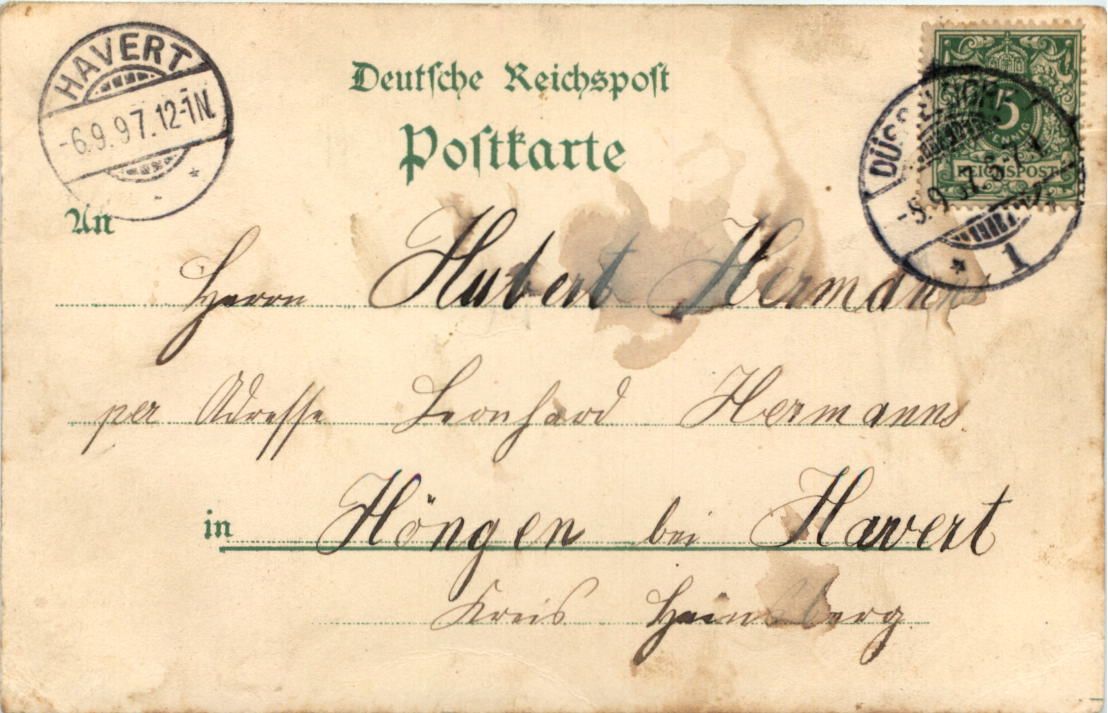 HAVERT
-6.9.97.12-1N.
Deutsche Reichspost
Postkarte
5
PFENNIG
REICHSPOST
DÜSSELDORF
1
An
Herrn Hubert Hermanns
per Adresse Leonhard Hermanns.
in Höngen bei Havert
Kreis Heinsberg.